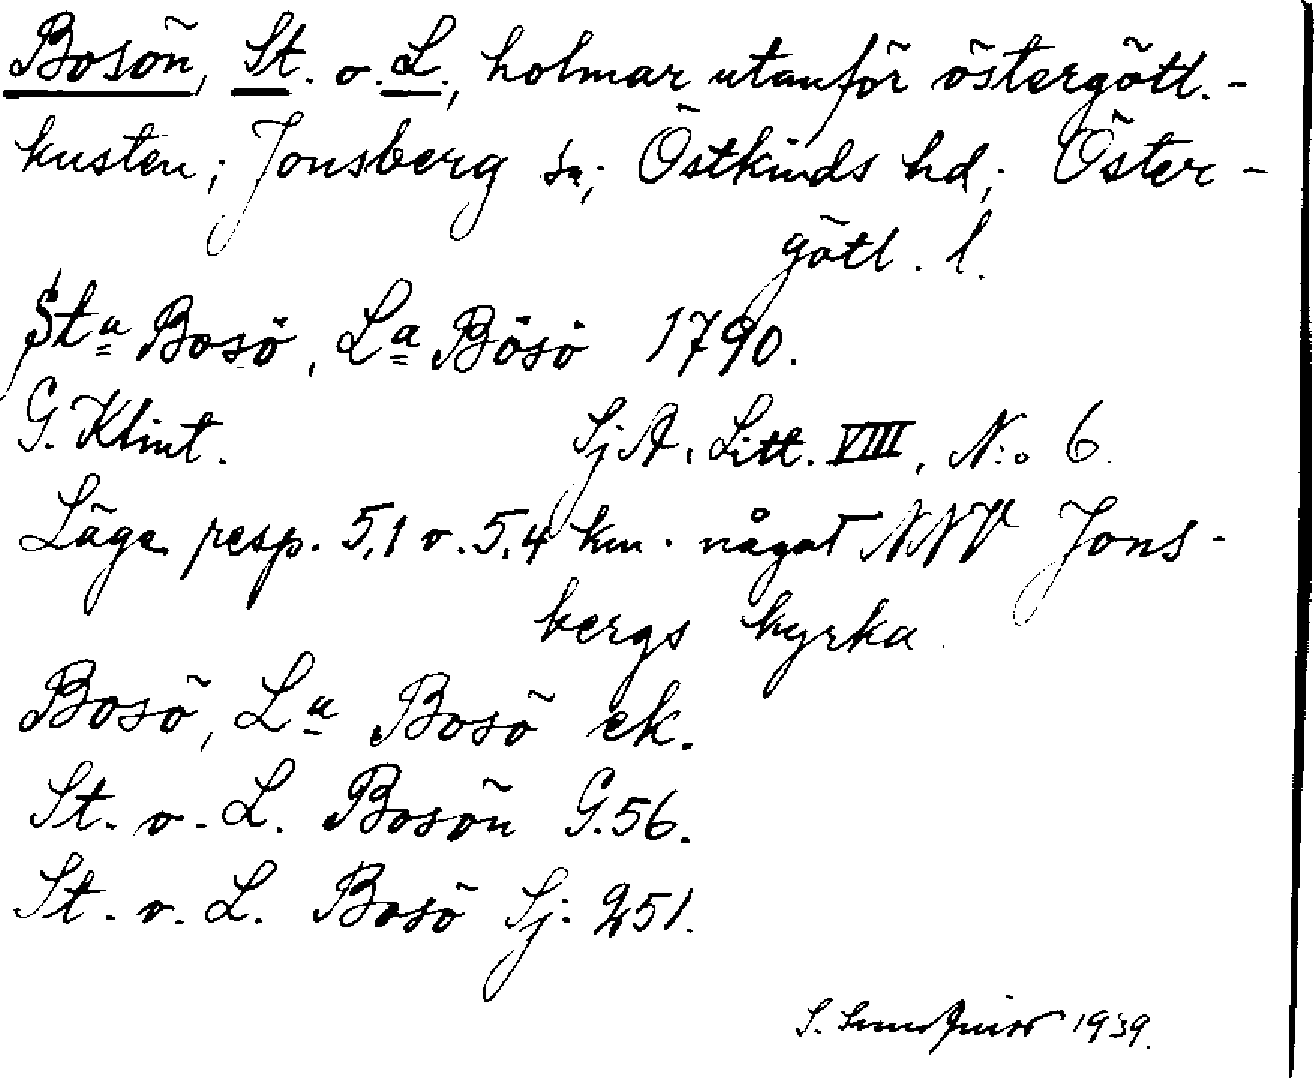 Bosön, St. o. L., holmar utanför östergötl.-
kusten; Jonsberg sn; Östkinds hd; Öster-
götl. l.
Sta Bosö, La Bösö 1790.
G. Klint. SjA. Litt. VIII, N:o 6.
Läge resp. 5,1 o. 5,4 km. något NNV Jons-
bergs kyrka.
Bosö, La Bosö ek.
St. o. L. Bosön G.56.
St. o. L. Bosö Sj: 251.
S. 1939.